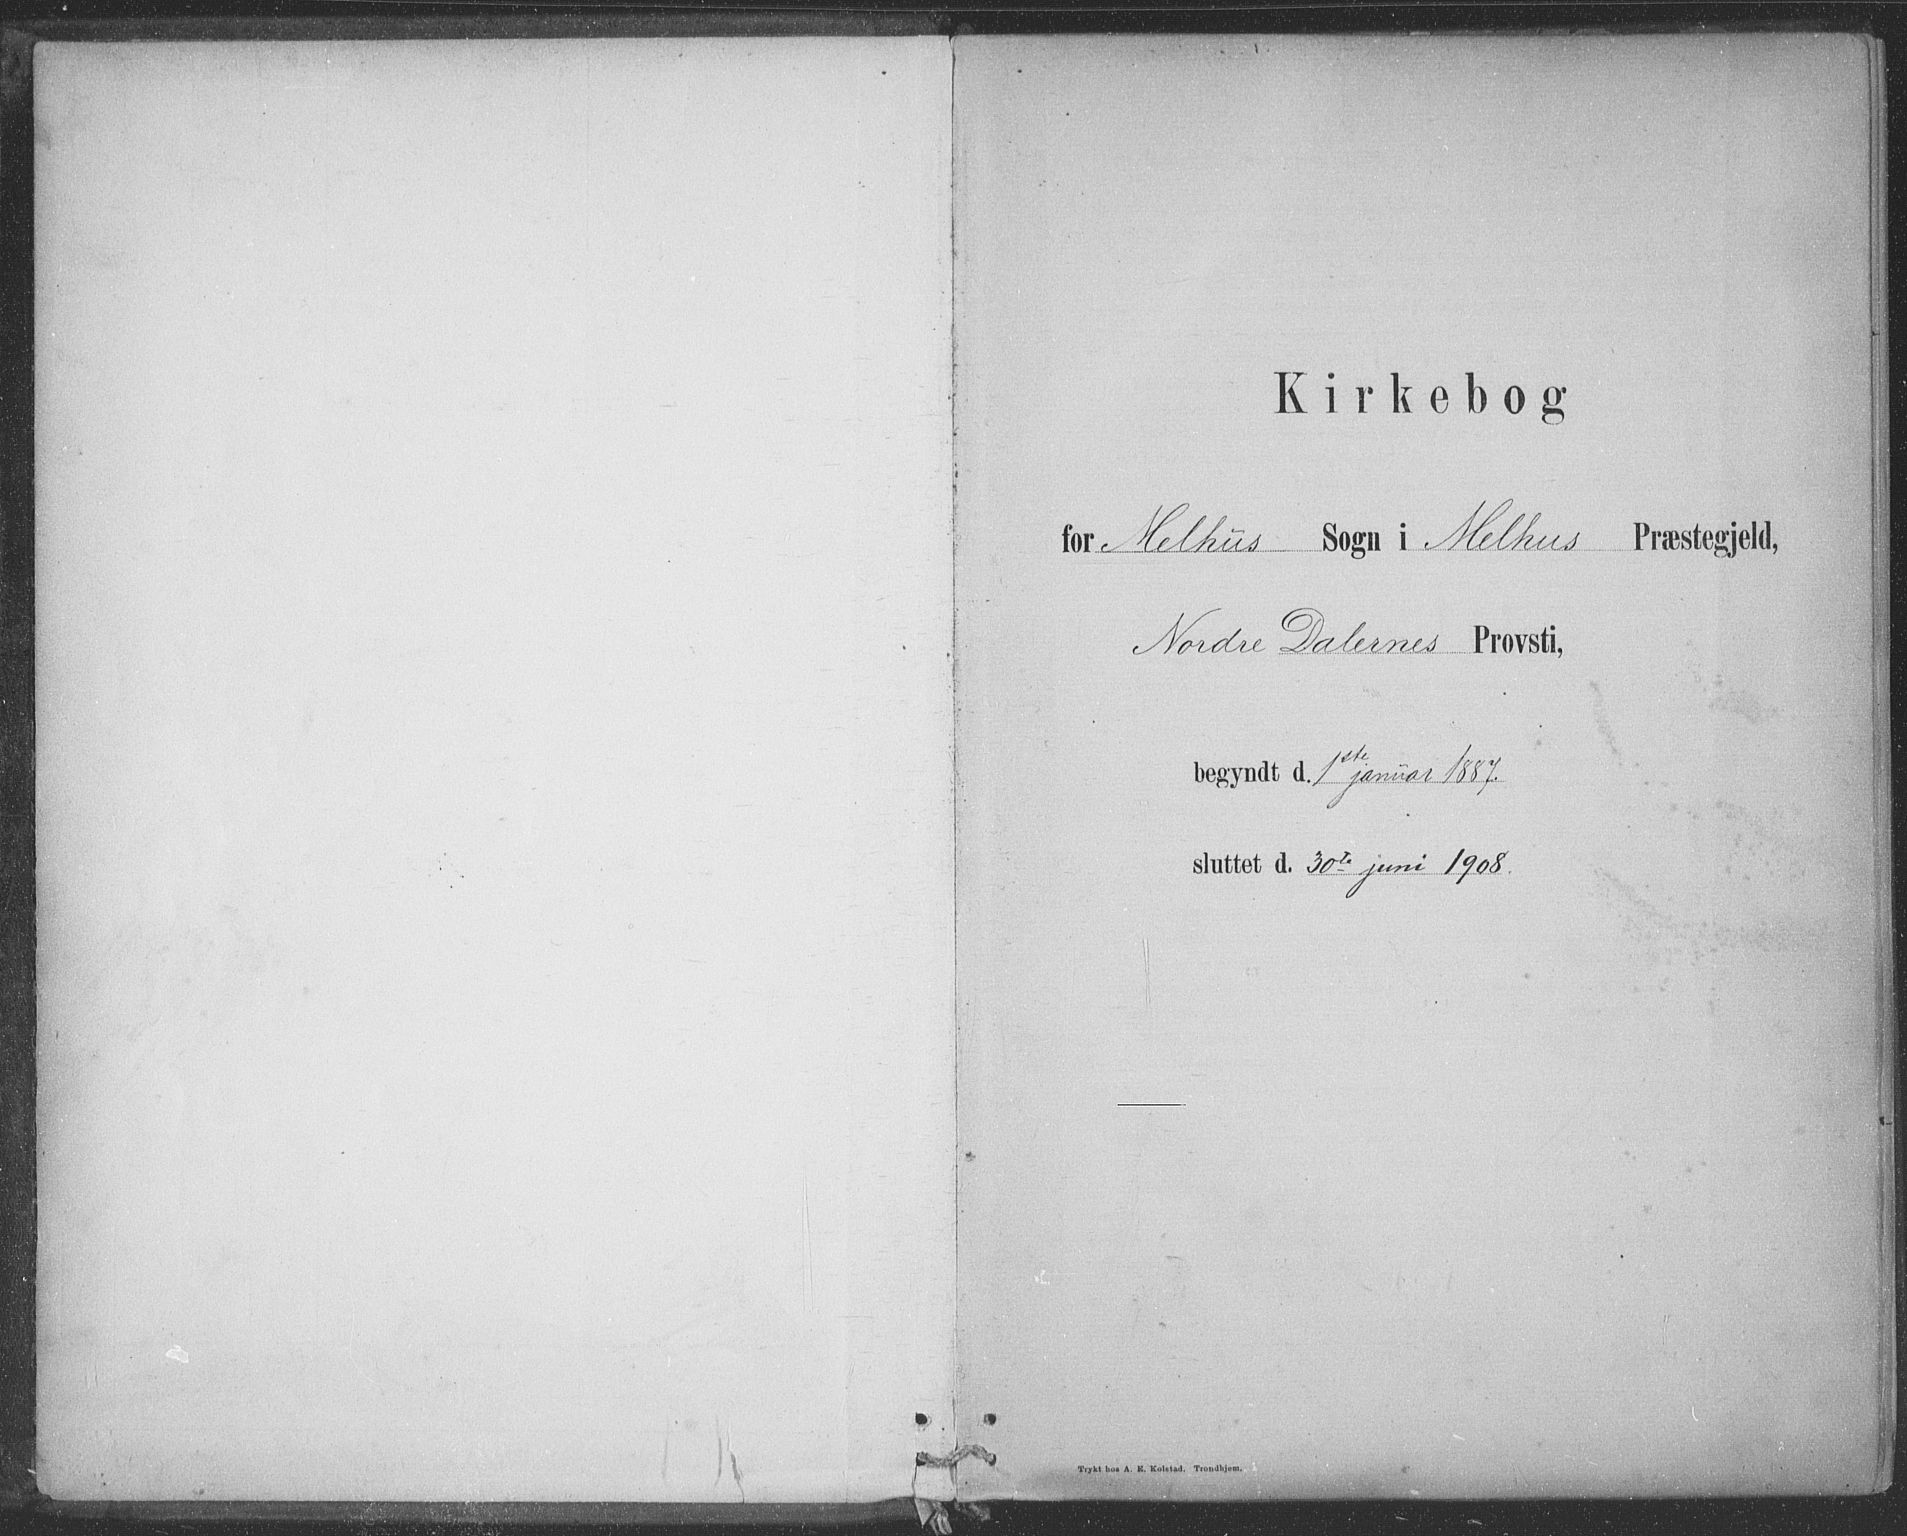 Kirkebog
for Melhüs Sogn i Melhus Præstegjeld,
Nordre Dalernes Provsti,
begyndt d. 1ste januar 1887.
sluttet d. 30te juni 1908.
Trykt hos A. E. Kolstad. Trondhjem.